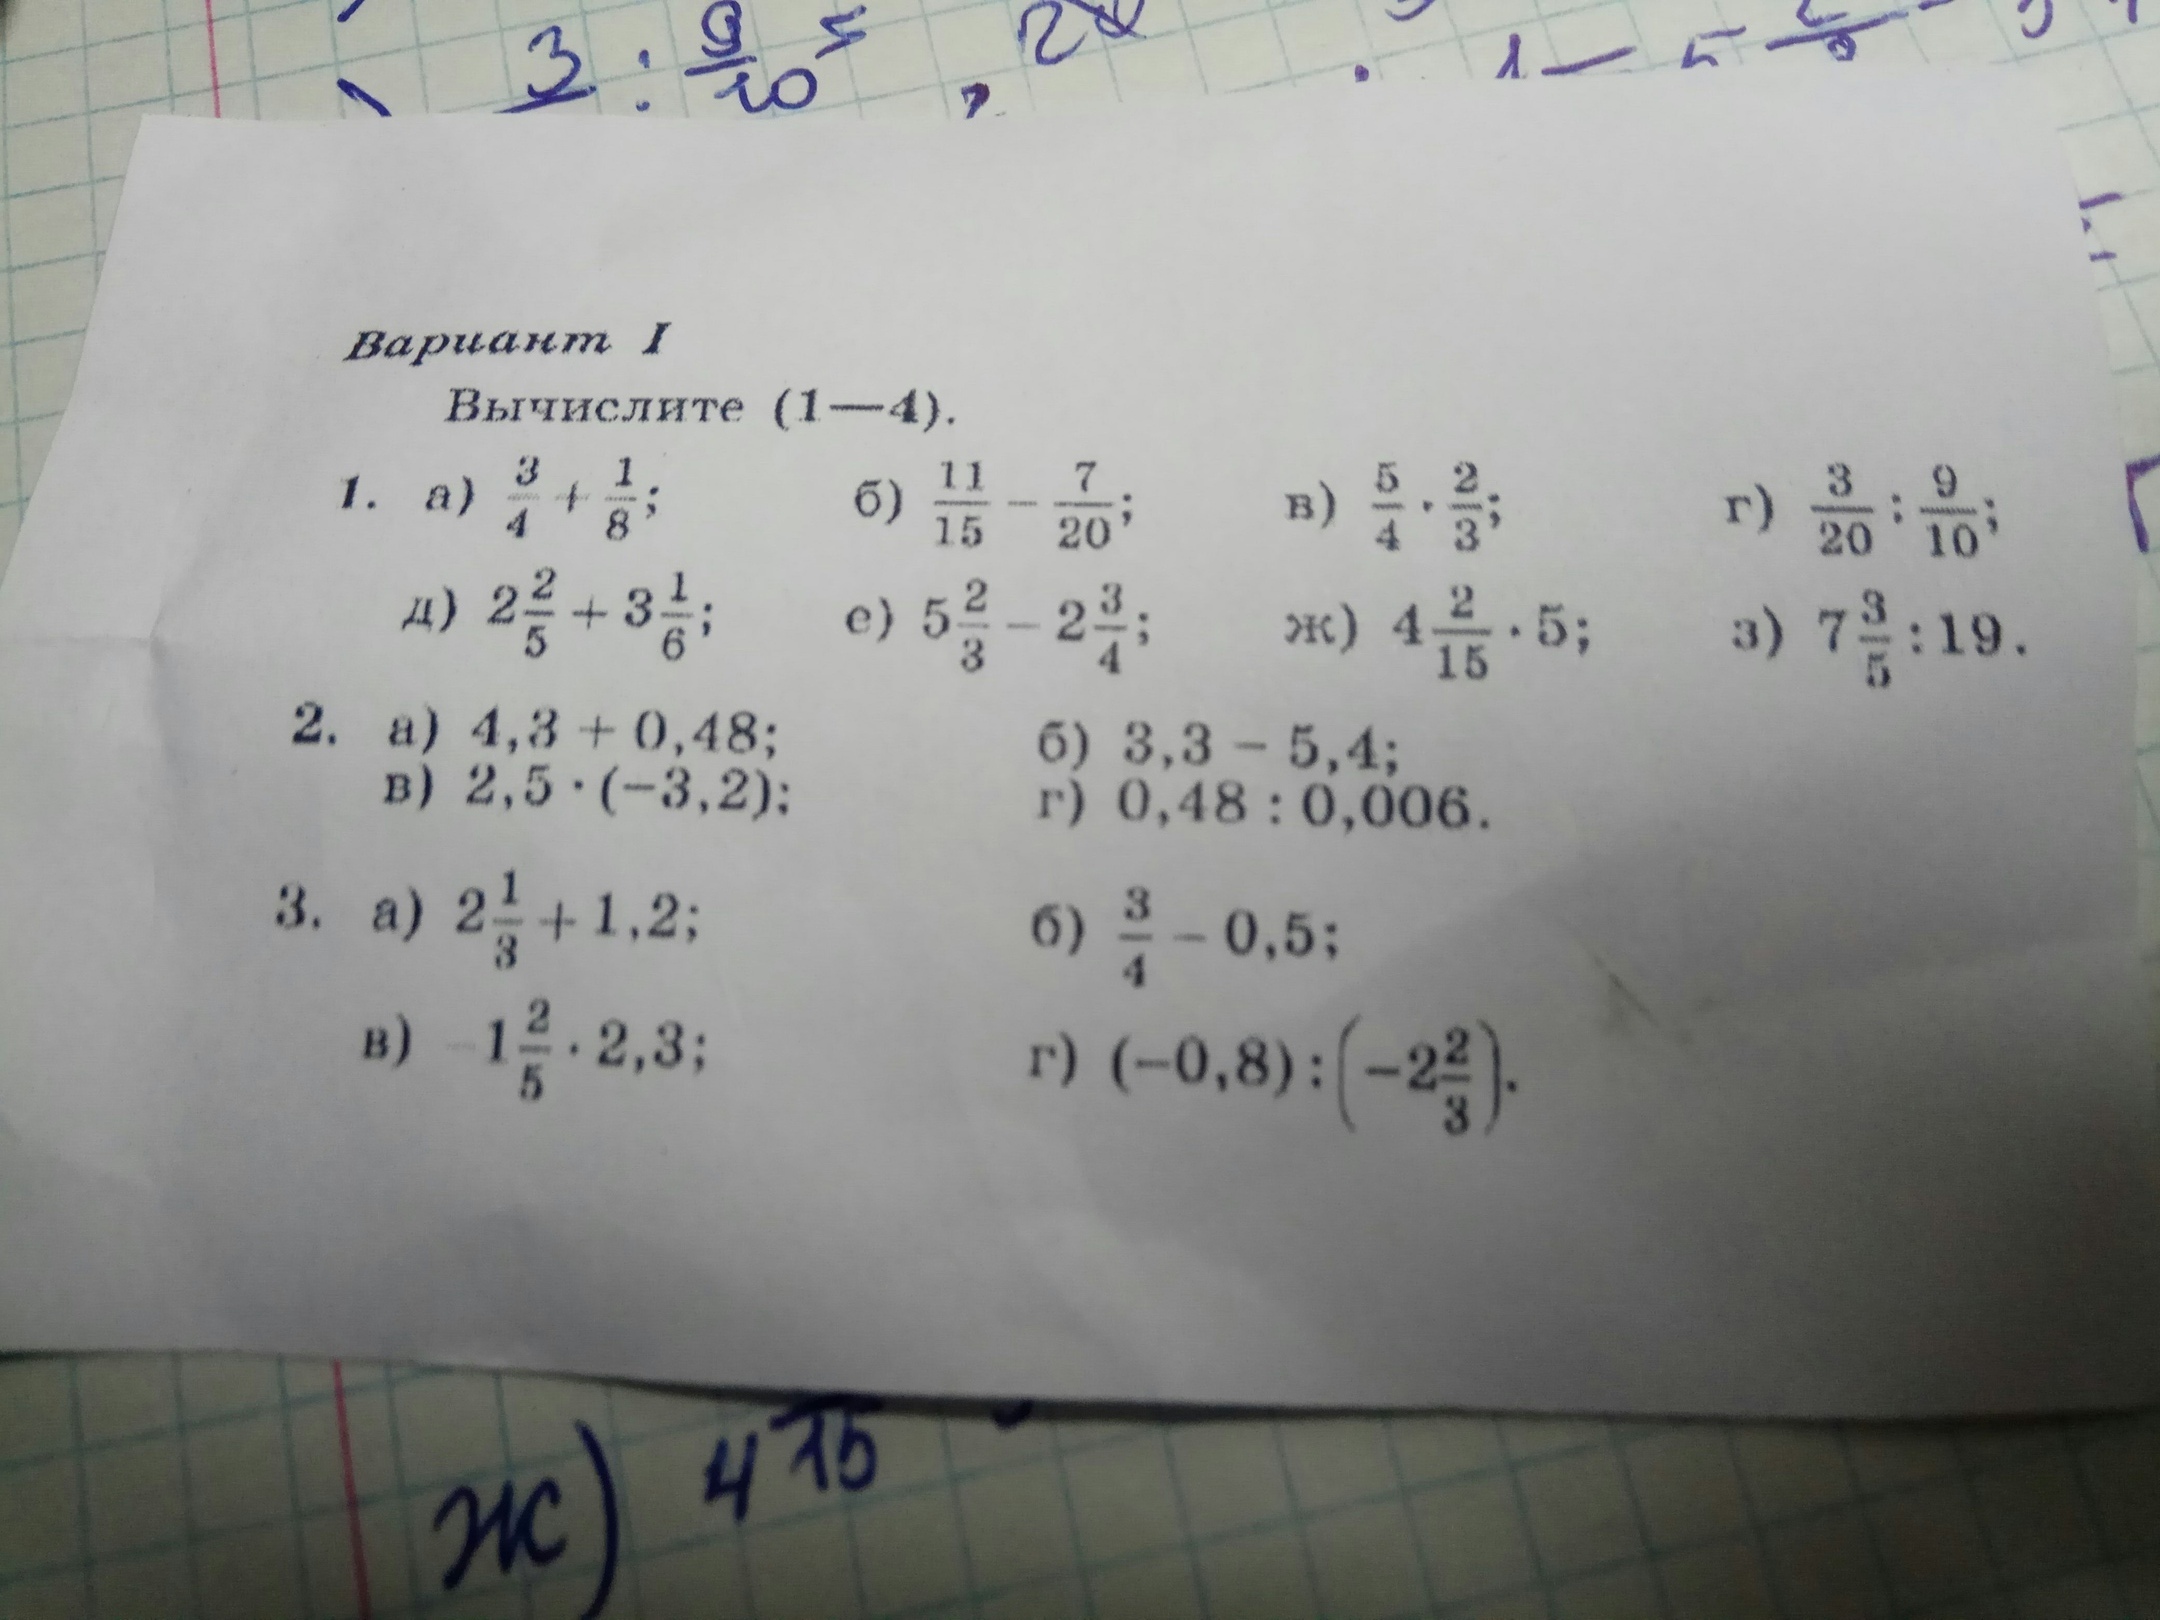 3 : 9/10
Вариант I
Вычислите (1—4).
1. а) 3/4 + 1/8; б) 11/15 − 7/20; в) 5/4 · 2/3; г) 3/20 : 9/10;
д) 2 2/5 + 3 1/6; е) 5 2/3 − 2 3/4; ж) 4 2/15 · 5; з) 7 3/5 : 19.
2. а) 4,3 + 0,48; б) 3,3 − 5,4;
в) 2,5 · (−3,2); г) 0,48 : 0,006.
3. а) 2 1/3 + 1,2; б) 3/4 − 0,5;
в) −1 2/5 · 2,3; г) (−0,8) : (−2 2/3).
ж) 4 15